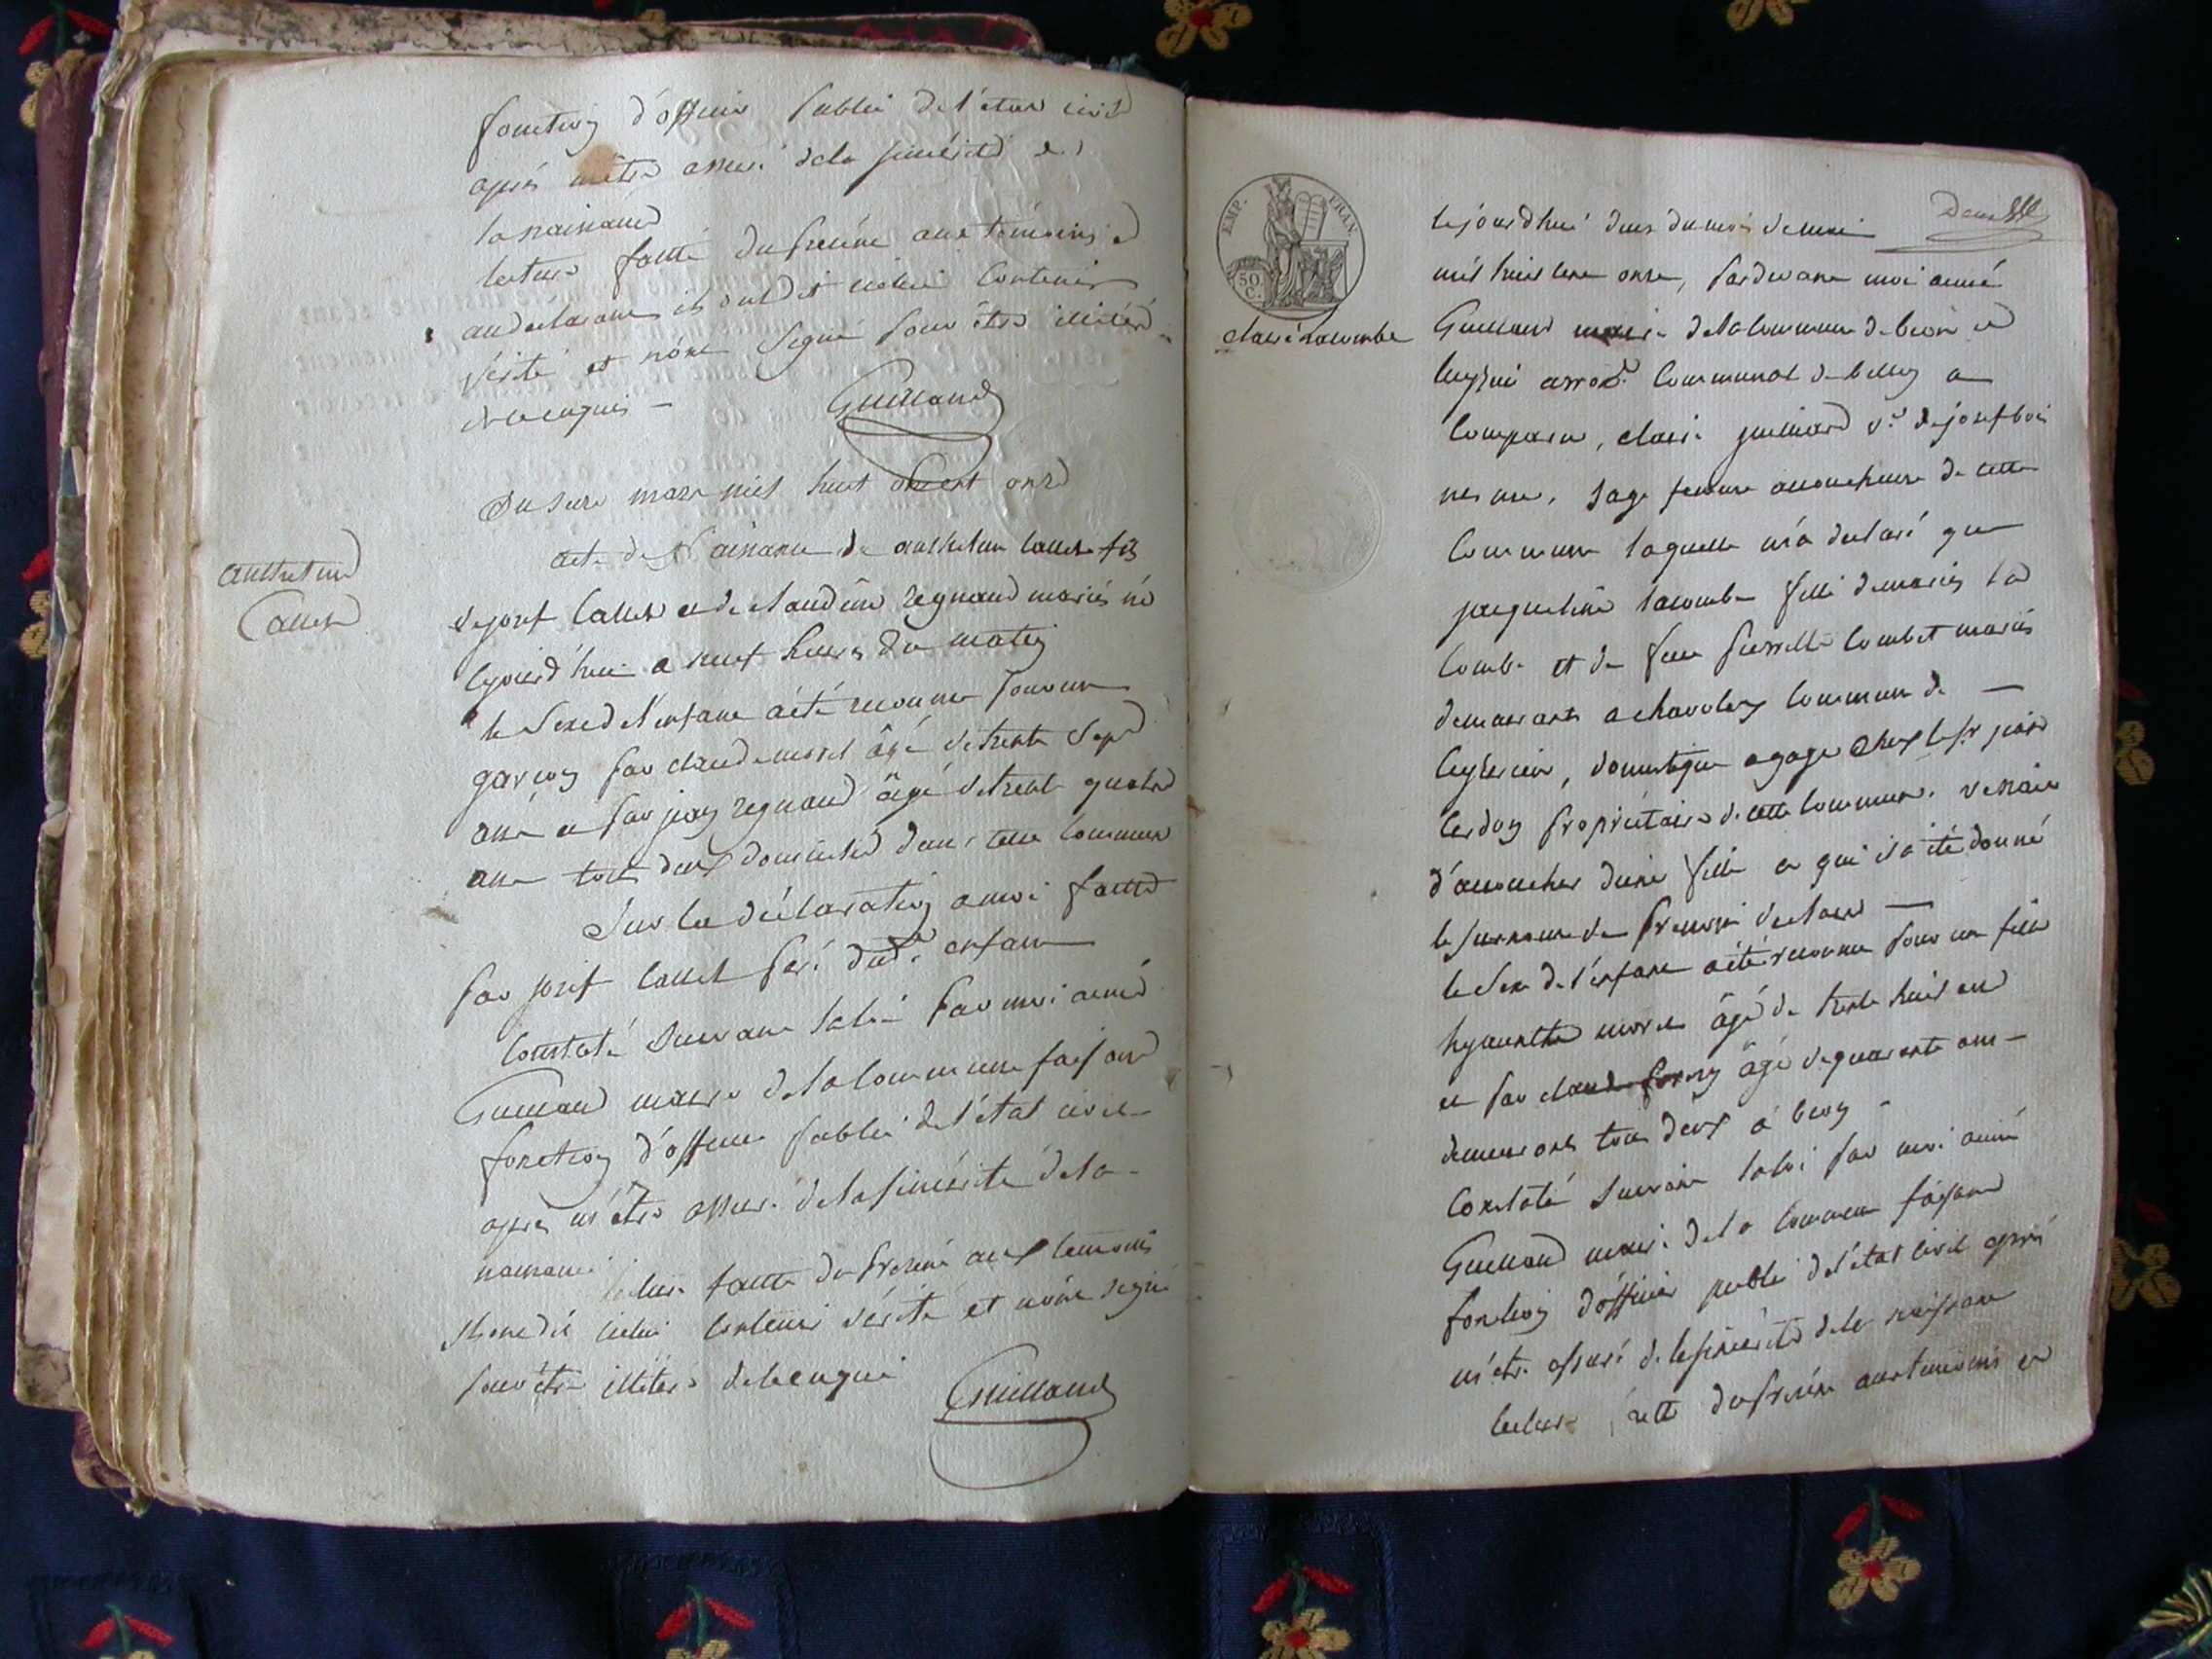 fonction d'officier public de l'état civil
après m'être assuré de la sincérité de
la naissance
lecture faitte du présent aux témoins et
au déclarant ils ont dit icelui contenir
vérité et n'ont signé pour être illitéré
de ce enquis —
Guilland
Du seize mars mil huit cent onze
Anthelme
Callet
acte de Naissance de anthelme callet fils
de josef Callet et de claudine regnaud mariés né
cejourd'hui a neuf heures du matin
le Sexe de l'enfant a été reconnu pour un
garçon par claude morel âgé de trente sept
ans et par jean regnaud âgé de trente quatre
ans tous deux domicilié dans cette commune
Sur la déclaration a moi faitte
par josef callet père dud. enfant
Constaté suivant la loi par moi aimé
Guilland maire de la commune faisant
fonction d'officier public de l'état civil
après m'être assuré de la sincérité de la
naissance
lecture faitte du présent aux temoins
ils ont dit icelui contenir vérité et n'ont signé
pour être illitéré de ce enquis
Guilland
EMP. FRAN
50.
C.
claire Lacombe
cejourd'hui deux du mois de mai
mil huit cent onze, par devant moi aimé
Guilland maire de la commune de beon et
luyrieu arrod. communal de belley a
comparu, claire guilland v.e de josef
sage femme accoucheuse de cette
commune laquelle m'a déclaré que
jacqueline lacombe fille de marin la
combe et de feue pierrette combet mariés
demeurant a chavoley commune de —
Ceyzerieu, domestique a gage chez le sr jean
cerdon propriétaire de cette commune. venait
d'accoucher d'une fille a qui il a été donné
le surnom de prénom de claire —
le sexe de l'enfant a été reconnu pour une fille
hyacinthe morel âgé de trente huit ans
et par claude âgé de quarante ans —
demeurant tous deux à beon
Constaté suivant la loi par moi aimé
Guilland maire de la commune faisant
fonction d'officier public de l'état civil après
m'être assuré de la sincérité de la naissance
lecture faitte du présent aux témoins et